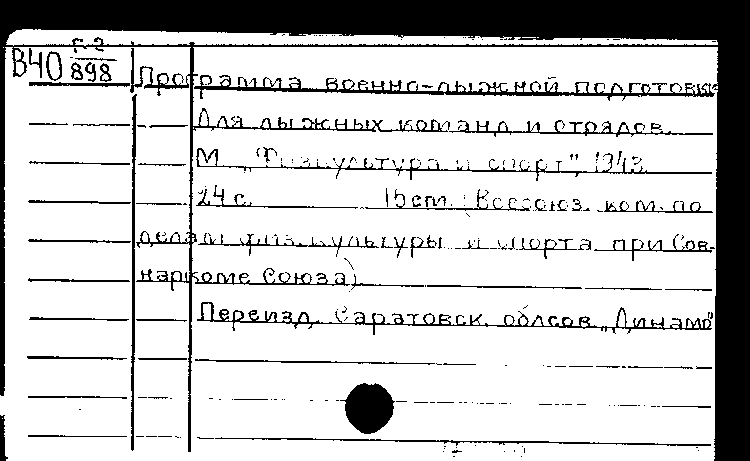 В40 Г-2
898
Программа военно-лыжной подготовки
Для лыжных команд и отрядов.
М. „Физкультура и спорт", 1943.
24 с. 15 см. (Всесоюз. ком. по
делам физ.культуры и спорта при Сов-
наркоме Союза)
Переизд. Саратовск. облсов. „Динамо"